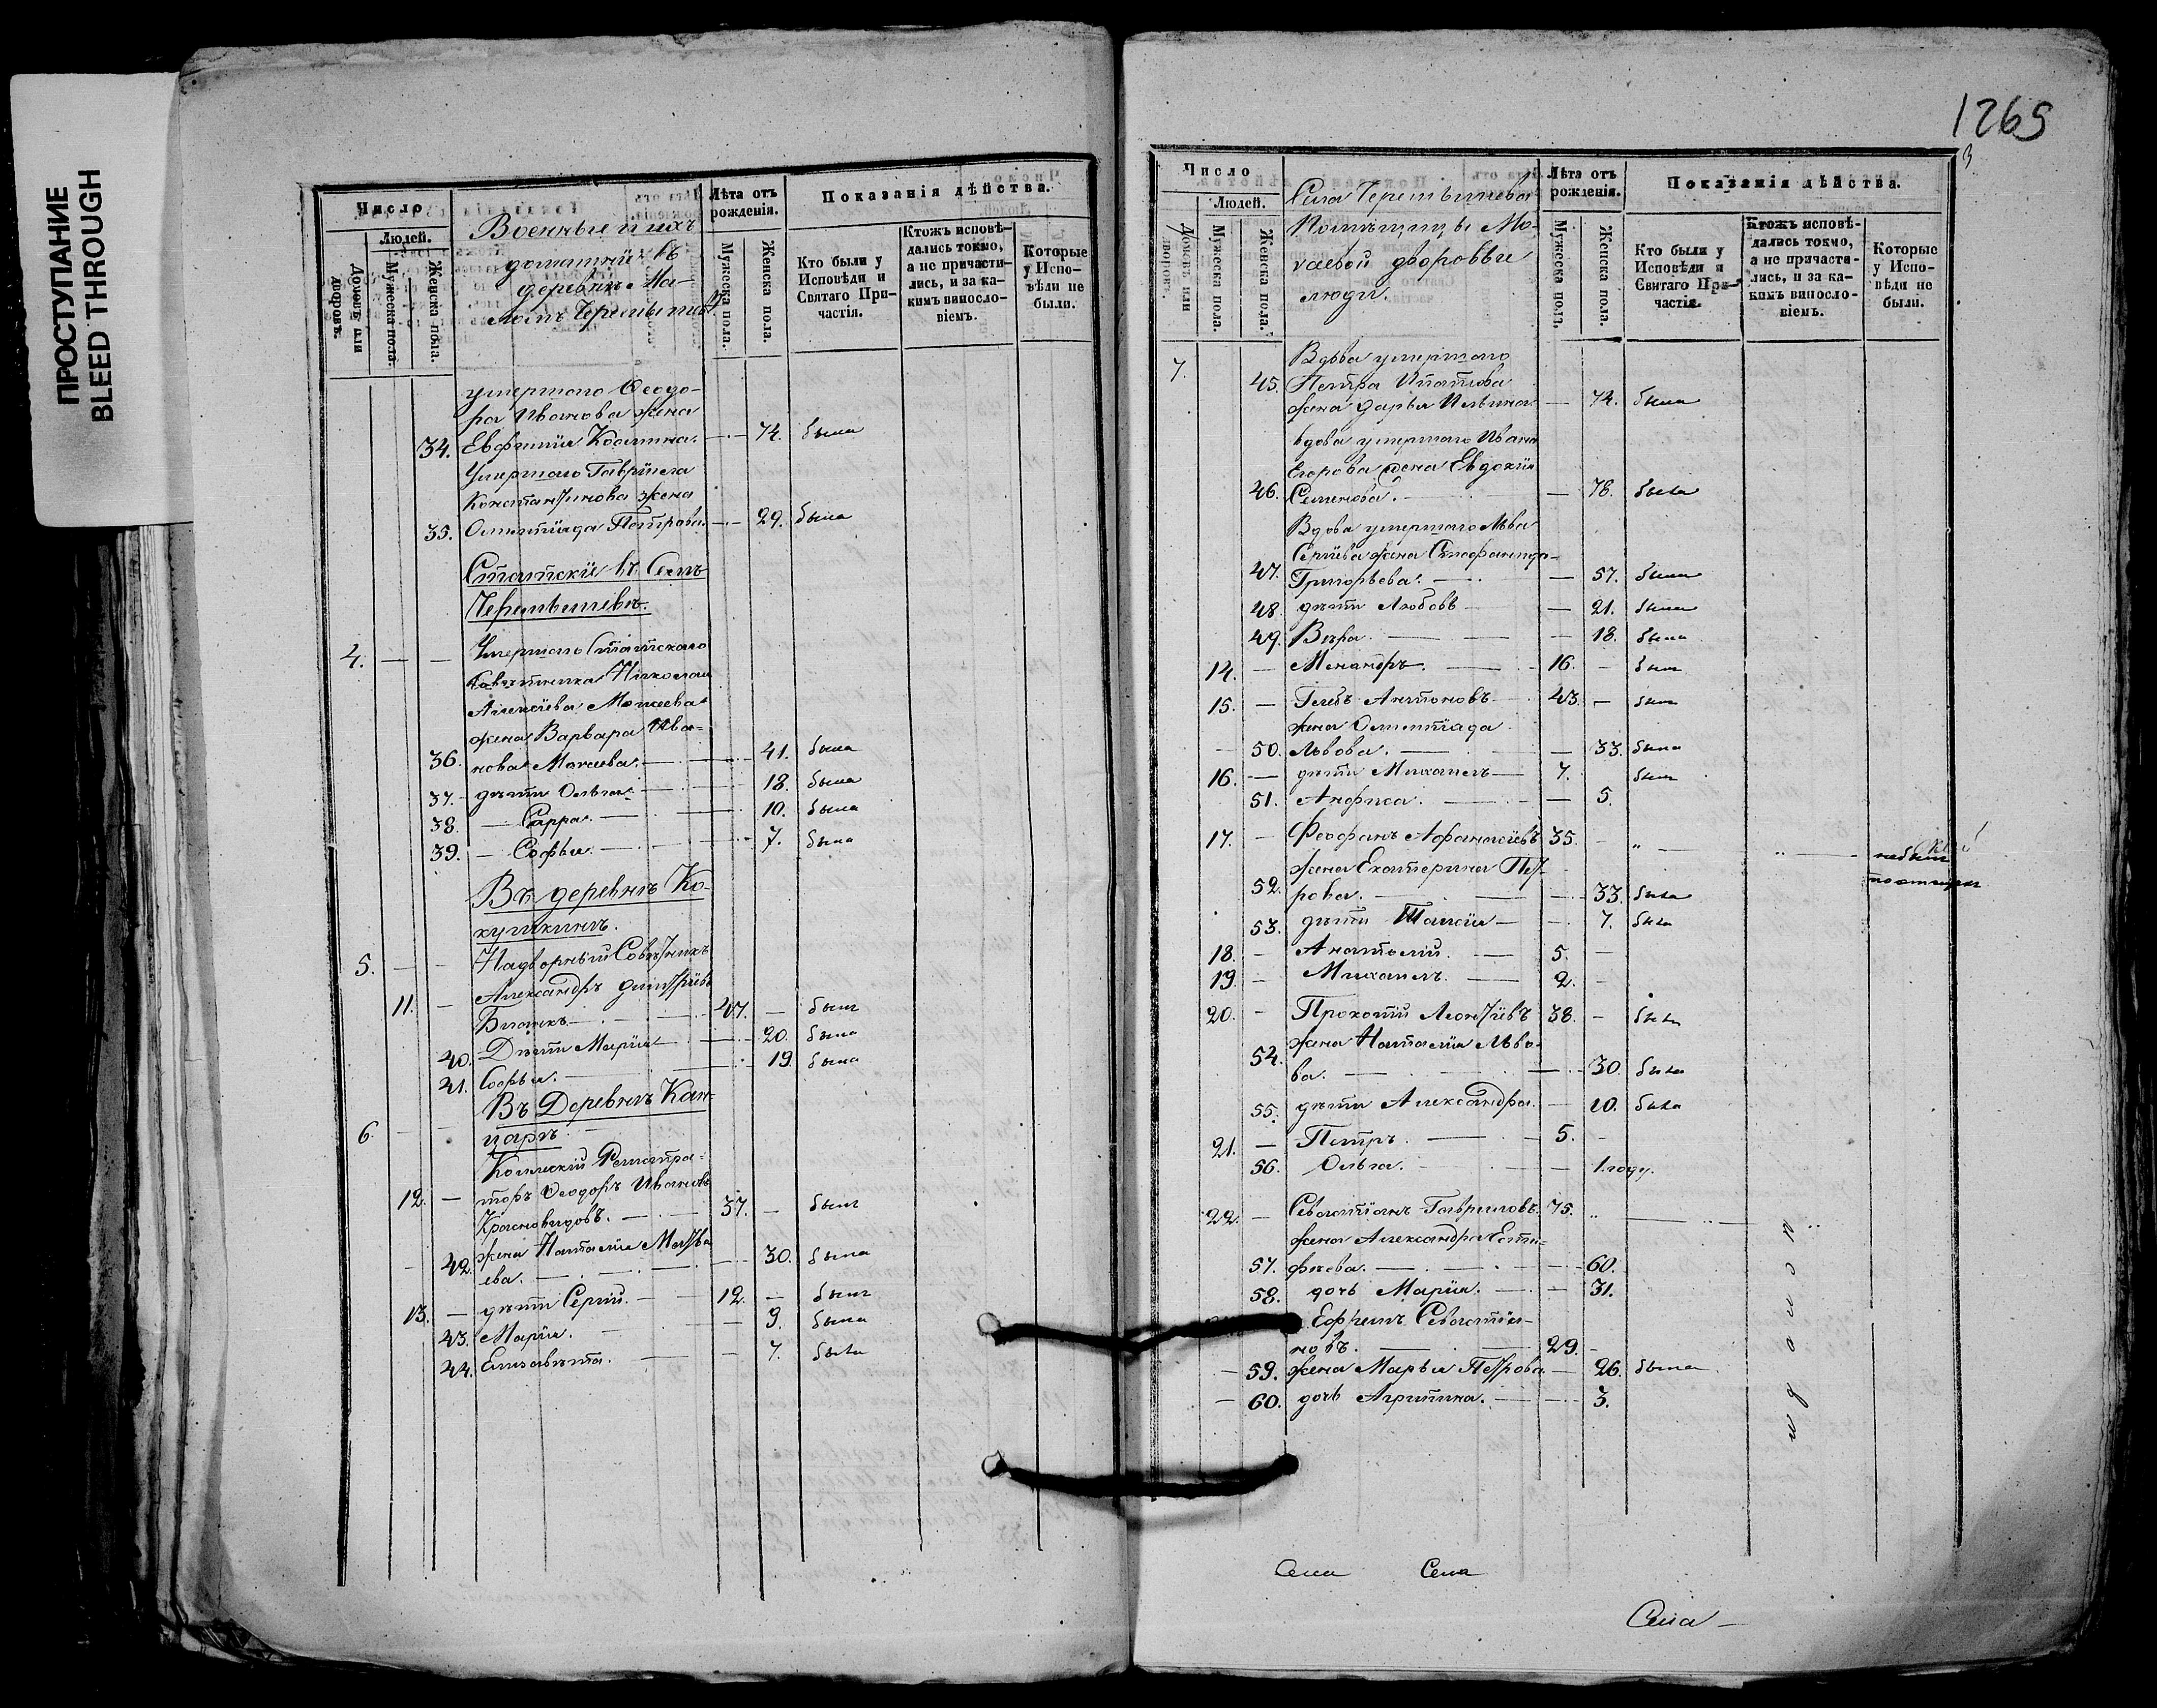 ПРОСТУПАНИЕ
BLEED THROUGH
Число
Людей.
Домовъ или дворовъ.
Мужеска пола.
Женска пола.
Военные и ихъ
домашніе въ
деревнѣ Ма-
Лѣта отъ рожденія.
Мужеска пола.
Женска пола.
Показанія дѣйства.
Кто были у Исповѣди и Святаго Причастія.
Ктожъ исповѣдались токмо, а не причастились, и за какимъ винословіемъ.
Которые у Исповѣди не были.
умершаго Ѳеодо-
ра Иванова жена
34. Евфимія Козмина. 74. была
Умершаго Гавріила
Константинова жена
35. Олимпіада Петрова. 29. была
Статскіе въ Селѣ
4. Умершаго Статскаго
Совѣтника Николая
Алексіева Мокеева
жена Варвара Ива-
36. нова Мокеева. 41. была
37. дѣти Ольга. 18. была
38. Сарра. 10. была
39. Софья. 7. была
Въ деревнѣ Ко-
кушкинѣ.
5. Надворный Совѣтникъ
Александръ Димитріевъ
11. Бланкъ 47. былъ
40. Дѣти Марія 20. была
41. Софья. 19. была
Въ Деревнѣ Кан-
6. царѣ.
Коллежскій Регистра-
12. торъ Ѳеодоръ Ивановъ
Красновидовъ. 37. былъ
жена Наталія Матвѣ
42. ева. 30. была
13. дѣти Сергій. 12. былъ
43. Марія. 9. была
44. Елизавета. 7. была
1265
3
Число
Людей.
Домовъ или дворовъ.
Мужеска пола.
Женска пола.
Села Черемышева
Помѣщицы Мо-
каевой дворовые
люди.
Лѣта отъ рожденія.
Мужеска пола.
Женска пола.
Показанія дѣйства.
Кто были у Исповѣди и Святаго Причастія.
Ктожъ исповѣдались токмо, а не причастились, и за какимъ винословіемъ.
Которые у Исповѣди не были.
7. Вдова умершаго
45. Петра Ипатова
жена Дарья Ильина 74. была
вдова умершаго Ивана
Егорова жена Евдокія
46. Семенова. 78. была
Вдова умершаго Льва
Сергіева жена Стефанида
47. Григорьева. 57. была
48. дѣти Любовь 21. была
49. Вѣра. 18. была
14. Менандръ. 16. былъ
15. Глебъ Антоновъ 43. былъ
жена Олимпіада
50. Львова. 33. была
16. дѣти Михаилъ 7. былъ
51. Анфиса. 5.
17. Феофанъ Афанасіевъ 35. небылъ
жена Екатерина Пет-
52. рова. 33. была
53. дѣти Таисія 7. была
18. Анатолій. 5.
19. Михаилъ. 2.
20. Прокопій Леонтіевъ 38. былъ
жена Наталія Льво-
54. ва. 30. была
55. дѣти Александра. 10. была
21. Петръ. 5.
56. Ольга. 1 году.
22. Севастіанъ Гавриловъ. 75.
жена Александра Епи-
57. фьева. 60.
58. дочь Марія. 31.
Ефремъ Севастія-
новъ. 29.
59. жена Марья Петрова 26. была
60. дочь Агрипина. 3.
Села Села
Села